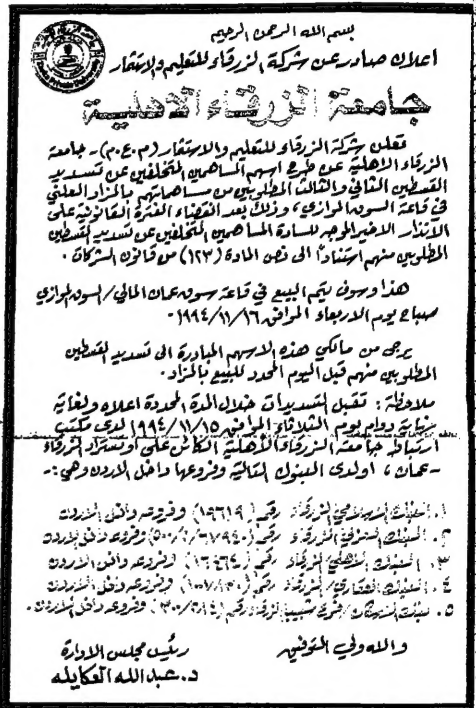 بسم الله الرحمن الرحيم
اعلان صادر عن شركة الزرقاء للتعليم والاستثمار
جامعة الزرقاء الاهلية
تعلن شركة الزرقاء للتعليم والاستثمار (م.ع.م) - جامعة
الزرقاء الاهلية عن طرح اسهم المساهمين المتخلفين عن تسديد
القسطين الثاني والثالث المطلوبين من مساهماتهم بالمزاد العلني
في قاعة السوق الموازي، وذلك بعد انقضاء الفترة القانونية على
الانذار الاخير الموجه للسادة المساهمين المتخلفين عن تسديد القسطين
المطلوبين منهم استناداً الى نص المادة (١٢٣) من قانون الشركات.
هذا وسوف يتم البيع في قاعة سوق عمان المالي / السوق الموازي
صباح يوم الاربعاء الموافق ١٩٩٤/١١/١٦.
يرجى من مالكي هذه الاسهم المبادرة الى تسديد القسطين
المطلوبين منهم قبل اليوم المحدد للبيع بالمزاد.
ملاحظة: تقبل التسديدات خلال المدة المحددة اعلاه ولغاية
نهاية دوام يوم الثلاثاء الموافق ١٩٩٤/١١/١٥ لدى مكتب
ارتباط جامعة الزرقاء الاهلية الكائن على اوتستراد الزرقاء
- عمان، اولدى البنوك التالية وفروعها داخل الاردن وهي:-
١. البنك الاسلامي / الزرقاء رقم (١٩٦١٩) وفروعه داخل الاردن
٢. البنك / الزرقاء رقم وفروعه داخل الاردن
٣. البنك الاهلي / الزرقاء رقم (١٦٤٦٤) وفروعه داخل الاردن
٤. البنك العقاري / الزرقاء رقم وفروعه داخل الاردن
٥. بنك / فرع شبيب / الزرقاء رقم وفروعه داخل الاردن.
والله ولي التوفيق
رئيس مجلس الادارة
د. عبدالله العكايله